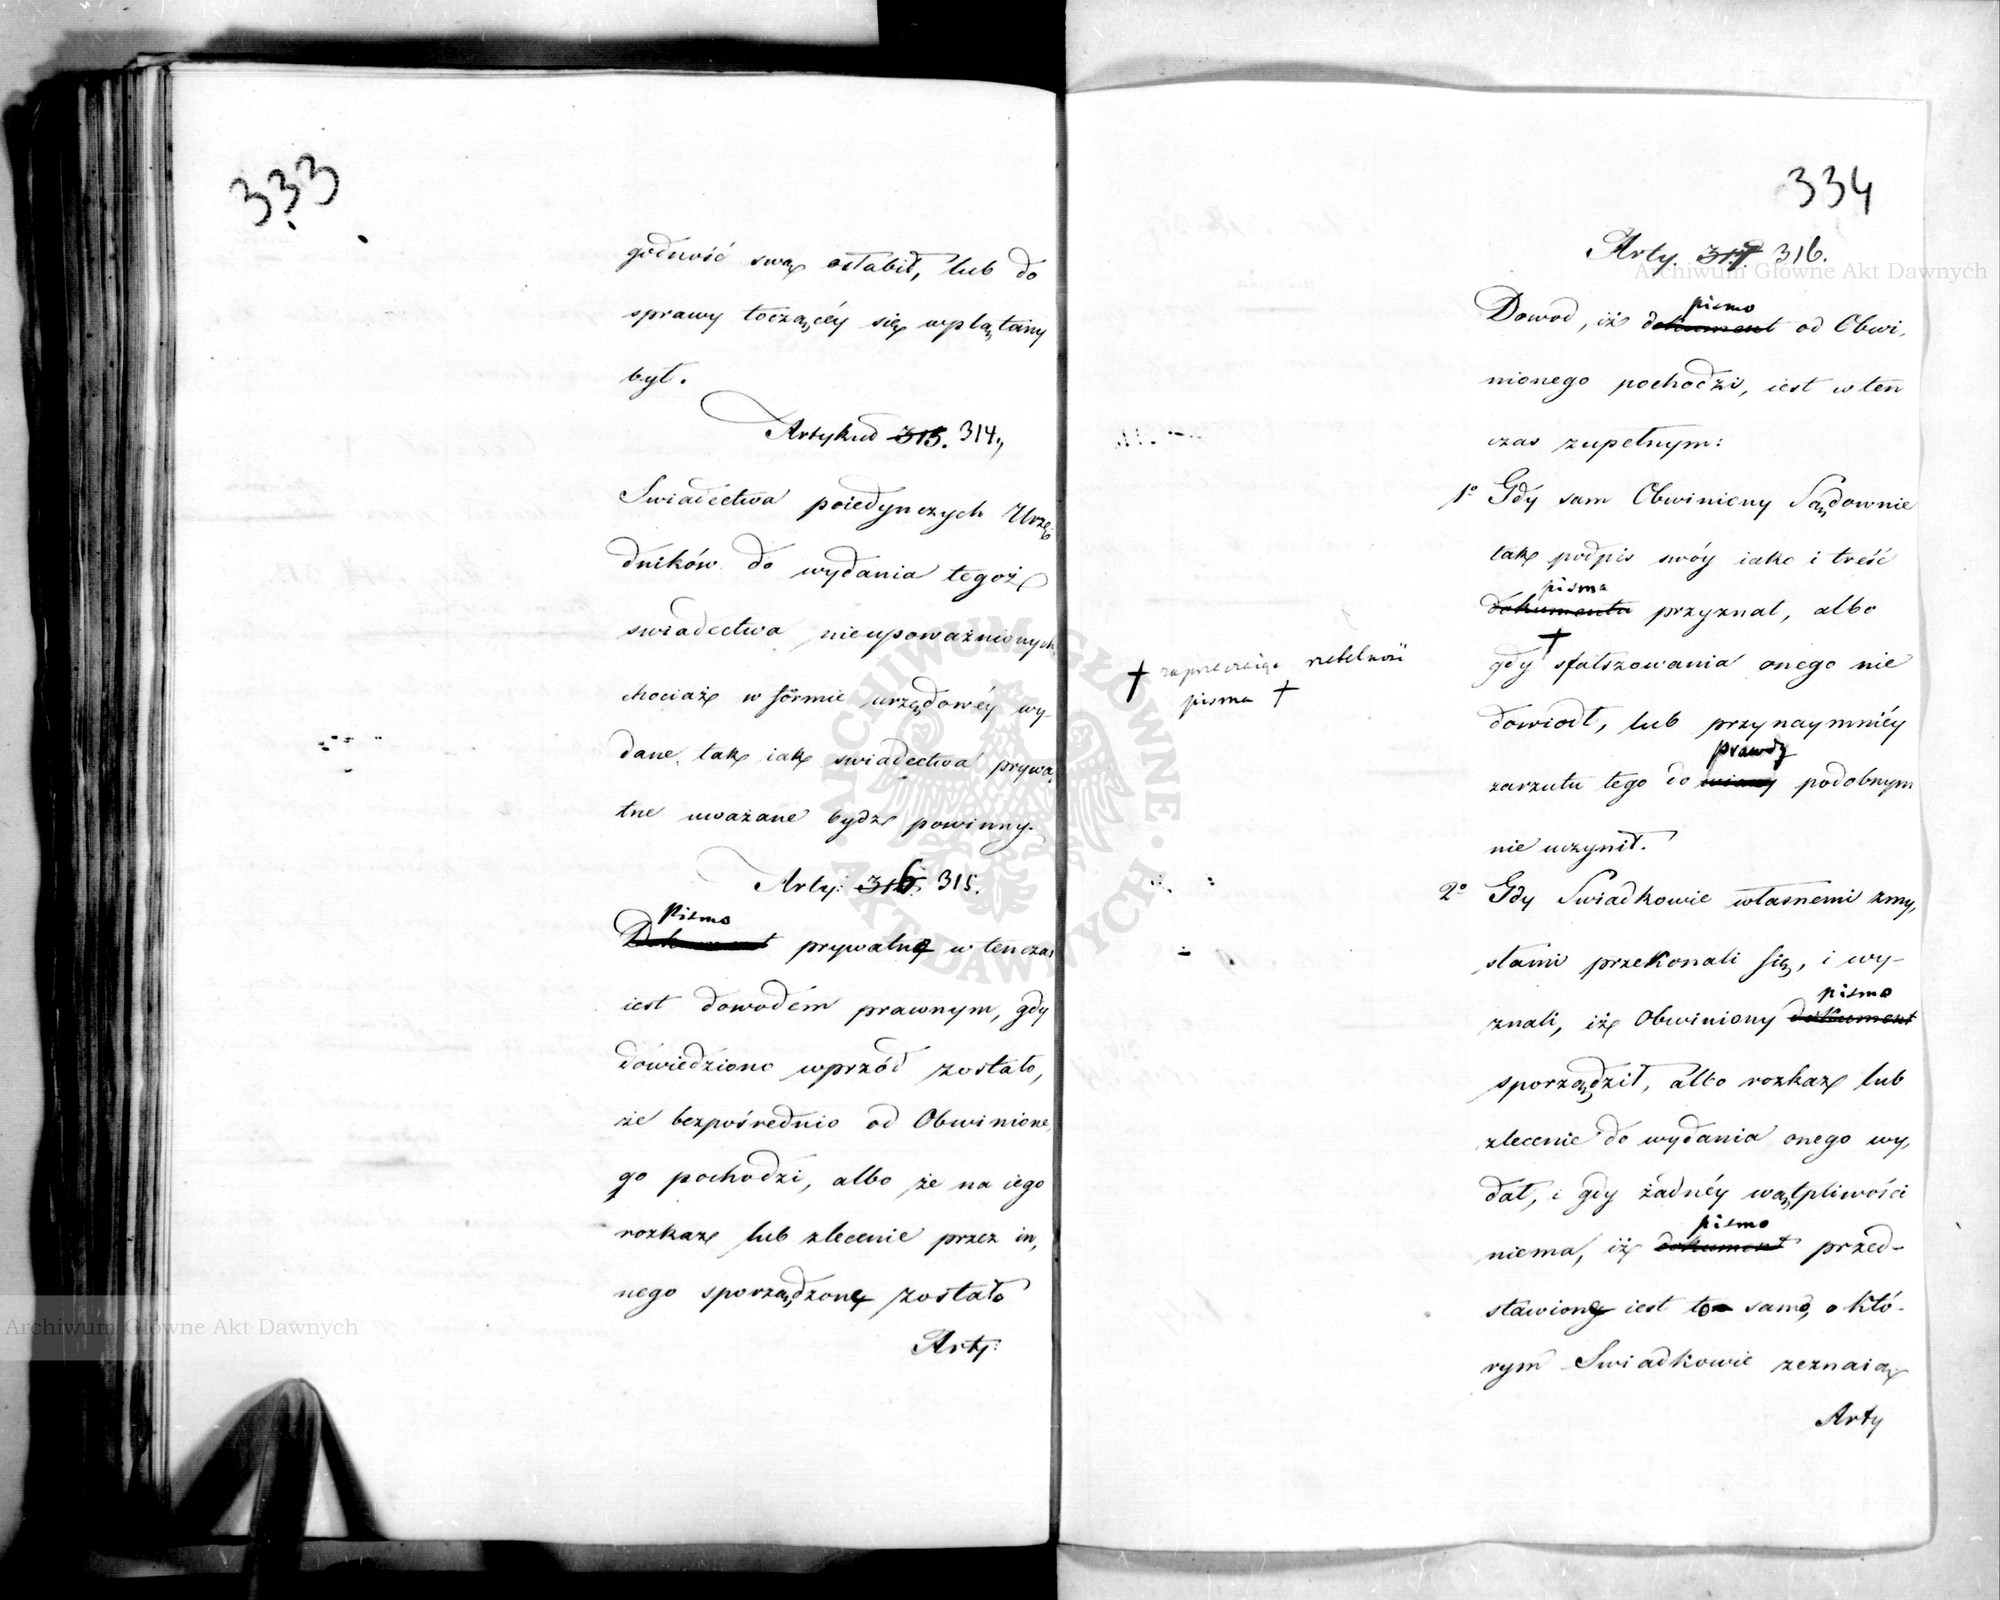 333
godność swą osłabił, lub do
sprawy toczącéy się wplątany
był.
Artykuł 315. 314.
Swiadectwa poiedynczych Urzę-
dników do wydania tegoż
swiadectwa nieupoważnionych,
chociaż w formie urzędowéy wy-
dane, tak iak swiadectwa prywa-
tne uważane bydź powinny.
Arty: 316. 315.
pismo
Dokument prywatne w tenczas
iest dowodem prawnym, gdy
dowiedziono wprzód zostało,
że bezpośrednio od Obwinione-
go pochodzi, albo że na iego
rozkaz lub zlecenie przez in-
nego sporządzone zostało
Arty:
334
Arty. 317 316.
pismo
Dowod, iż dokument od Obwi-
nionego pochodzi, iest w ten
czas zupełnym:
1o Gdy sam Obwiniony Sądownie
tak podpis swóy iako i treść
pisma
dokumentu przyznał, albo
gdy † sfałszowania onego nie
† zaprzeczaiąc rzetelności
pisma †
dowiodł, lub przynaymniéy
prawdy
zarzutu tego do wiary podobnym
nie uczynił.
2o Gdy Swiadkowie własnemi zmy-
słami przekonali się, i wy-
pismo
znali, iż Obwiniony dokument
sporządził, albo rozkaz lub
zlecenie do wydania onego wy-
dał, i gdy żadnéy wątpliwości
pismo
niema, iż dokument przed-
stawione iest to samo, o któ-
rym Swiadkowie zeznaią
Arty
Archiwum Główne Akt Dawnych
Archiwum Główne Akt Dawnych
ARCHIWUM GŁÓWNE AKT DAWNYCH